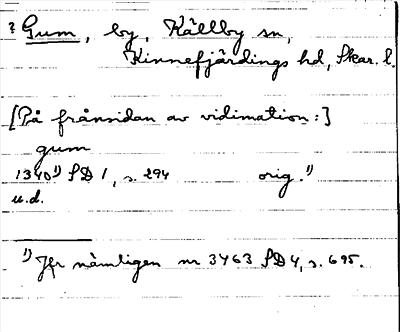 ? Gum, by, Källby sn,
Kinnefjärdings hd, Skar. l.
[På frånsidan av vidimation:]
gum
1340¹) SD 1, s. 294 orig.¹)
u.d.
¹) Jfr nämligen nr 3463 SD 4, s. 695.